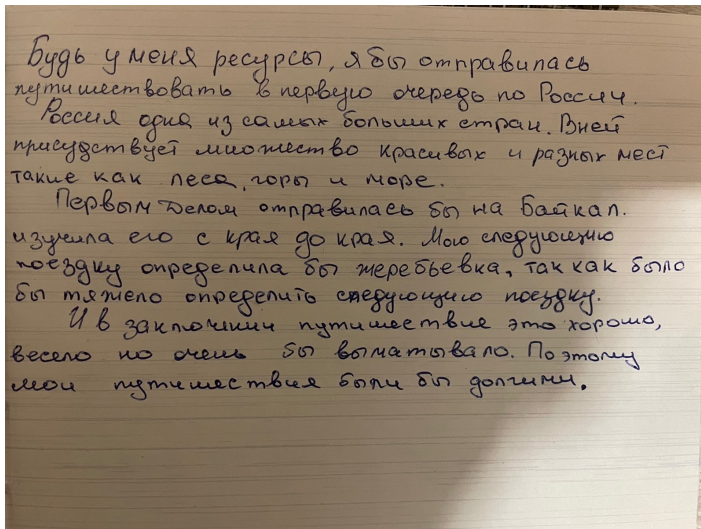 Будь у меня ресурсы, я бы отправилась
путишествовать в первую очередь по России.
Россия одна из самых больших стран. Вней
присудствует множество красивых и разных мест
такие как леса, горы и море.
Первым делом отправилась бы на Байкал.
изучила его с края до края. Мою следующую
поездку определила бы жеребьевка, так как было
бы тяжело определить следующую поездку.
И в заключии путишествие это хорошо,
весело но очень бы выматывало. По этому
мои путишествия были бы долгими.